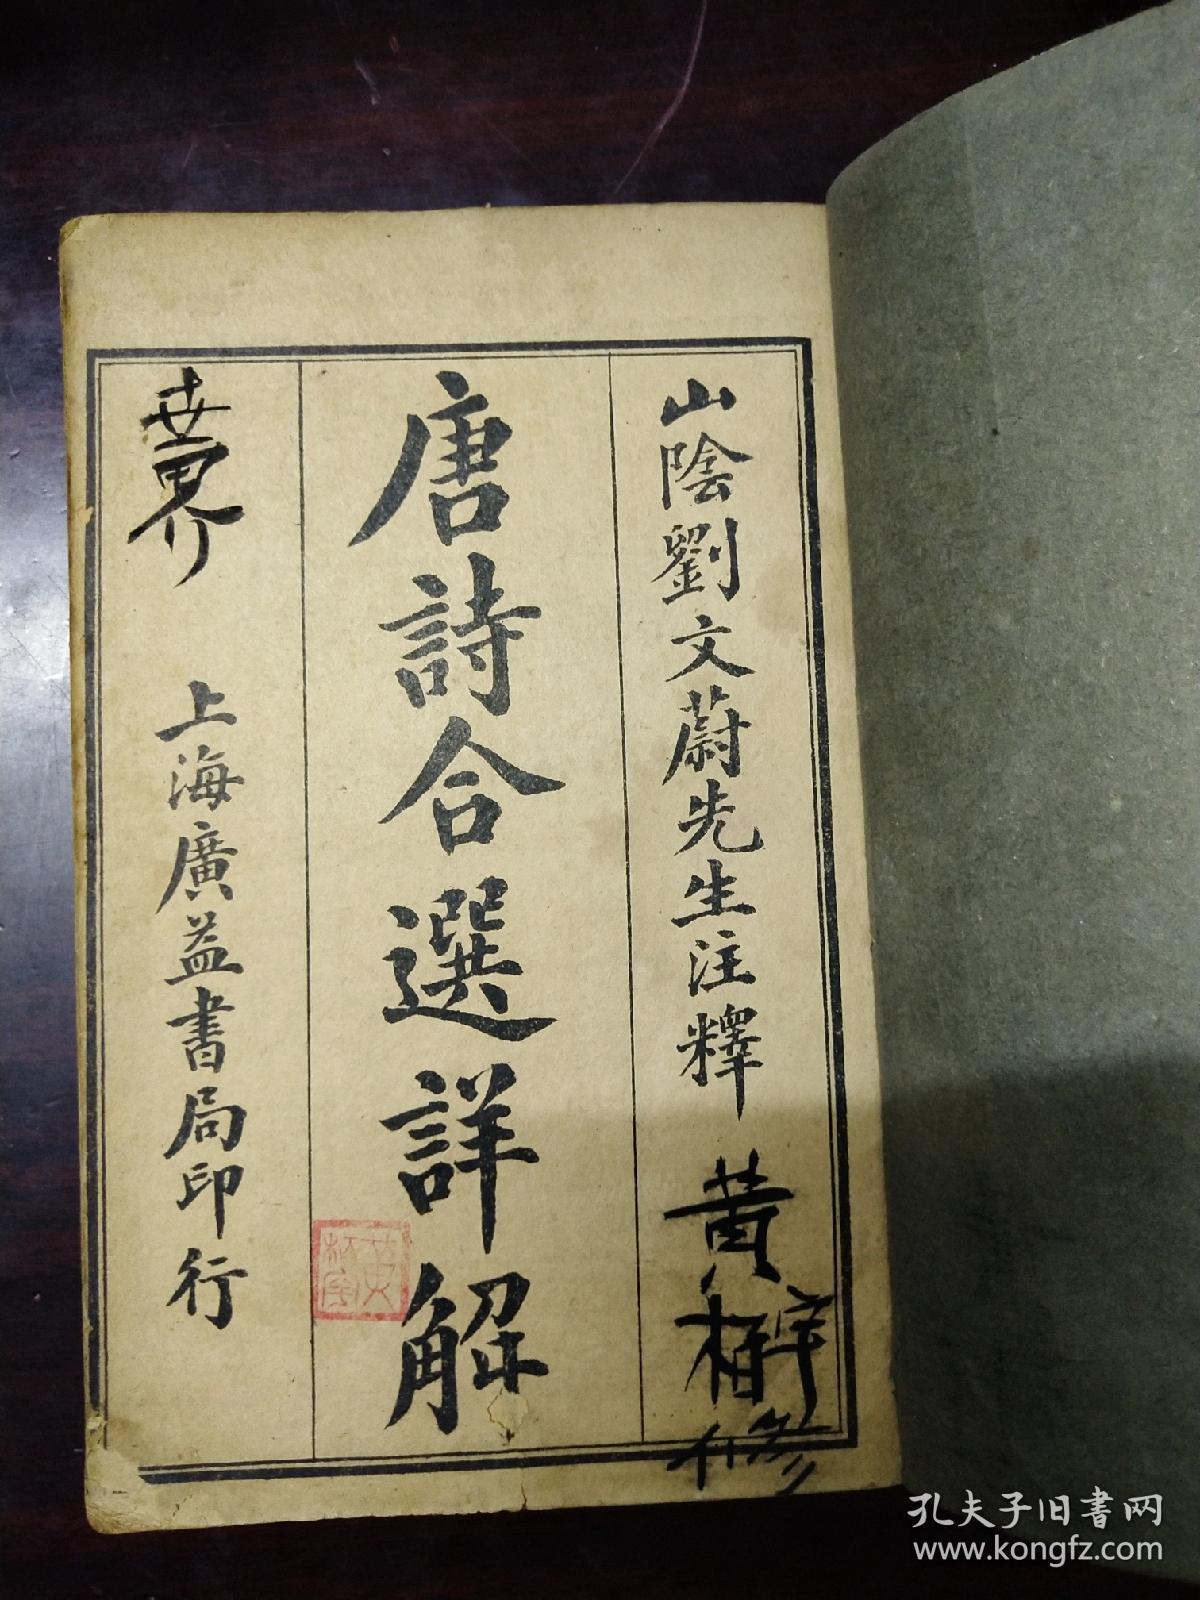 山陰劉文蔚先生注釋
黄
修
唐詩合選詳解
世界
上海廣益書局印行
孔夫子旧书网
www.kongfz.com